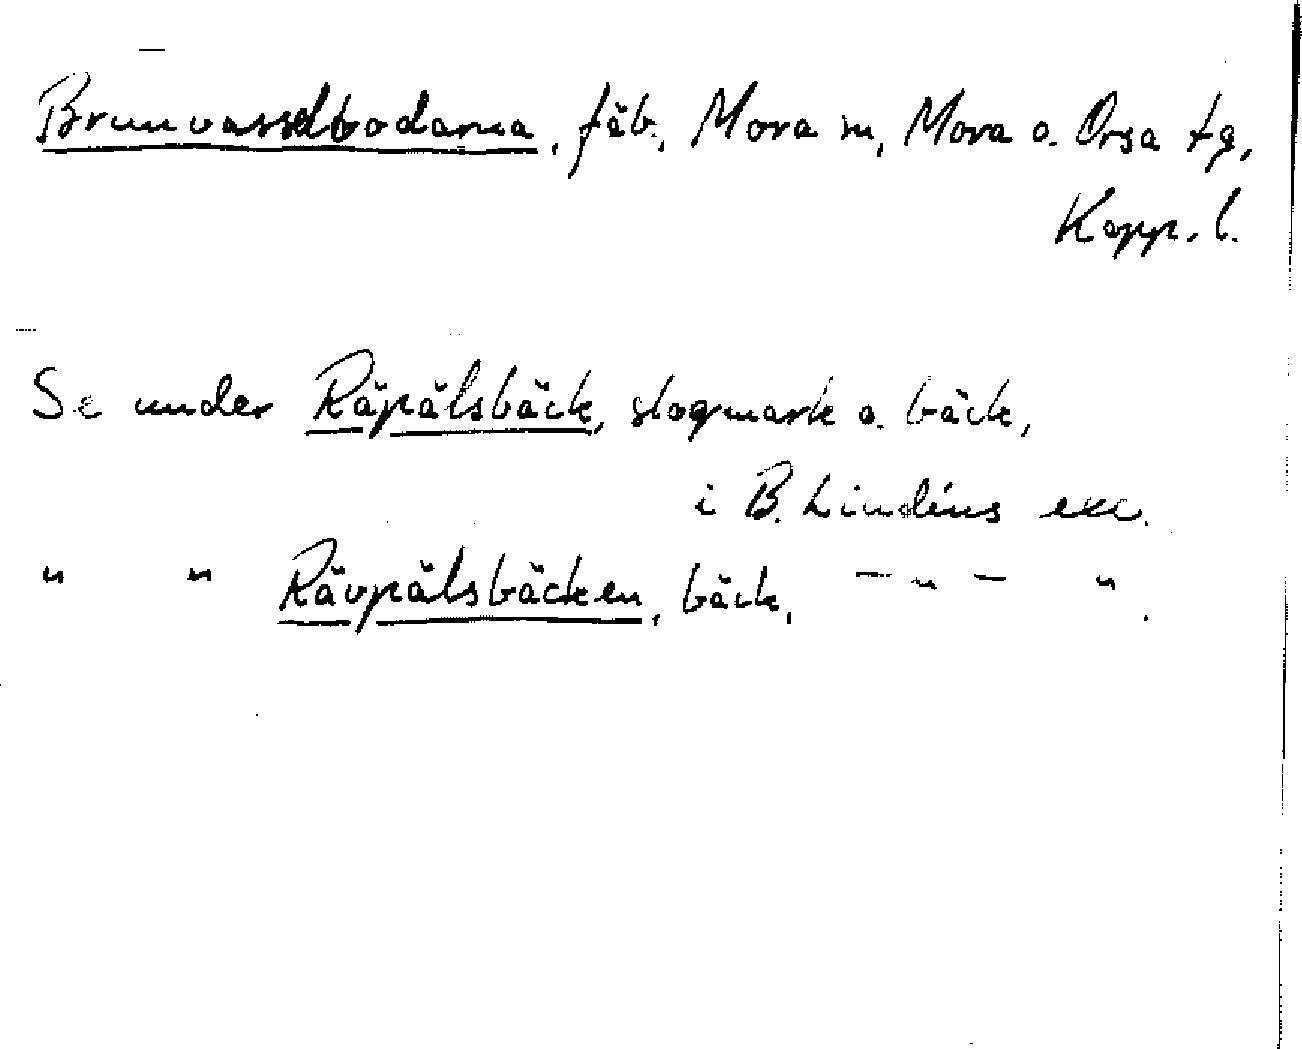 Brunvasselbodarna, fäb., Mora sn, Mora o. Orsa tg,
Kopp. l.
Se under Räpälsbäck, slogmark o. bäck,
i B. Lindéns exc.
" " Rävpälsbäcken, bäck, — " — " .